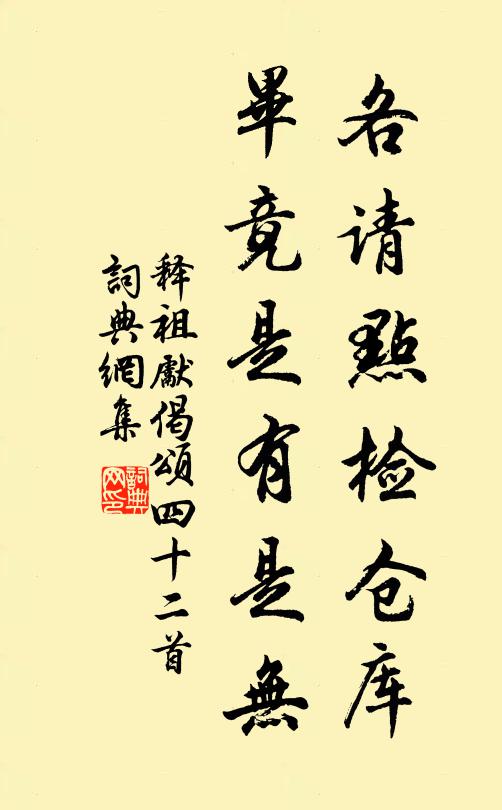 各请點检仓库
畢竟是有是無
释祖獻偈頌四十二首
詞典網集
詞典网印